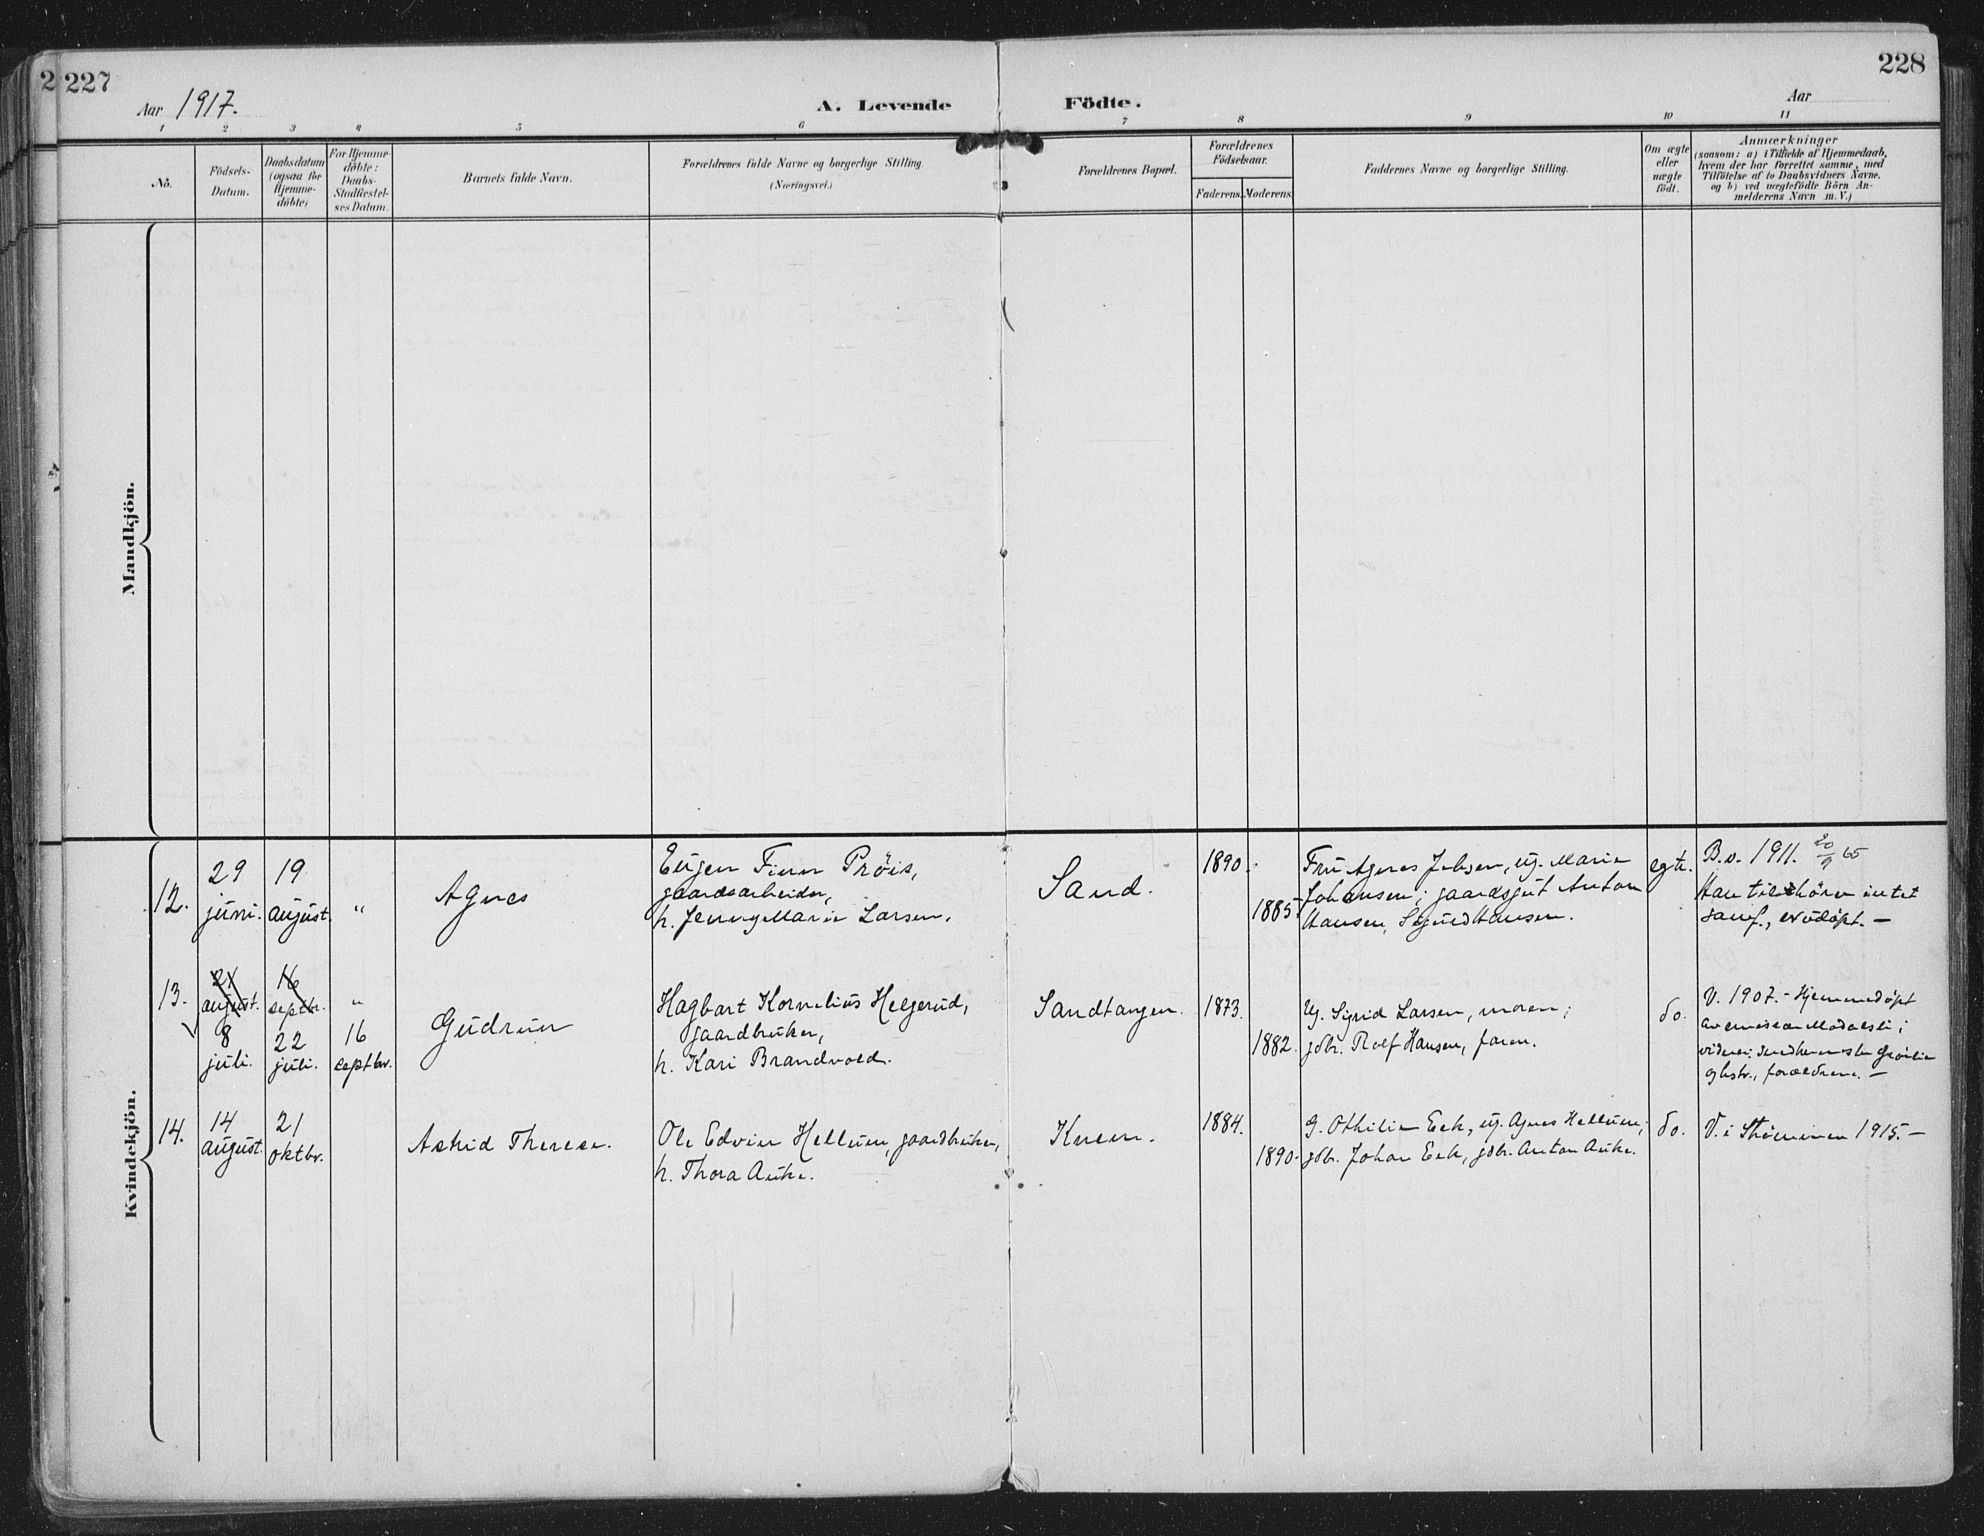 2 227
228
Aar 1917.
A. Levende Födte.
Aar
1 2 3 4 5 6 7 8 9 10 11
No.
Födsels-
Datum.
Daabsdatum
(ogsaa for
Hjemme-
döbte)
For Hjemme-
döbte:
Daabs-
Stadfæstel-
ses Datum.
Barnets fulde Navn.
Forældrenes fulde Navne og borgerlige Stilling
(Næringsvei.)
Forældrenes Bopæl.
Forældrenes
Födselsaar.
Faderens. Moderens.
Faddernes Navne og borgerlige Stilling.
Om ægte
eller
uægte
födt.
Anmærkninger
(saasom: a) i Tilfælde af Hjemmedaab,
hvem der har forrettet samme, med
Tilföielse af to Daabsvidners Navne.
og b) ved uægtefödte Börn An-
melderens Navn m. V.)
Mandkjön.
Kvindekjön.
12.
29
juni.
19
august.
"
Agnes
Eugen Finn Pröis,
gaardsarbeider,
h. Jenny Marie Larsen.
Sand.
1890.
1885.
Fru Agnes Jebsen, ug. Marie
Johansen; gaardsgut Anton
Hansen, Sigurd Hansen.
egte.
B.v. 1911. 20/9 65
Han tilhörer intet
samf., er udöpt. —
13.
21
august.
8
juli.
16
septbr.
22
juli.
"
16
septbr.
Gudrun
Hagbart Kornelius Helgerud,
gaardbruker,
h. Kari Brandvold.
Sandtangen.
1873.
1882.
Ug. Sigrid Larsen, moren;
gdbr. Rolf Hansen, faren.
do.
V. 1907. - Hjemmedöpt
forældrene. —
14.
14
august.
21
oktbr.
Astrid Therese.
Ole Edvin Hellum, gaardbruker,
h. Thora Auke.
Knem.
1884.
1890.
G. Othilie Eek, ug. Agnes Hellum;
gdbr. Johan Eek, gdbr. Anton Auke.
do.
V. i Strömmen 1915. —